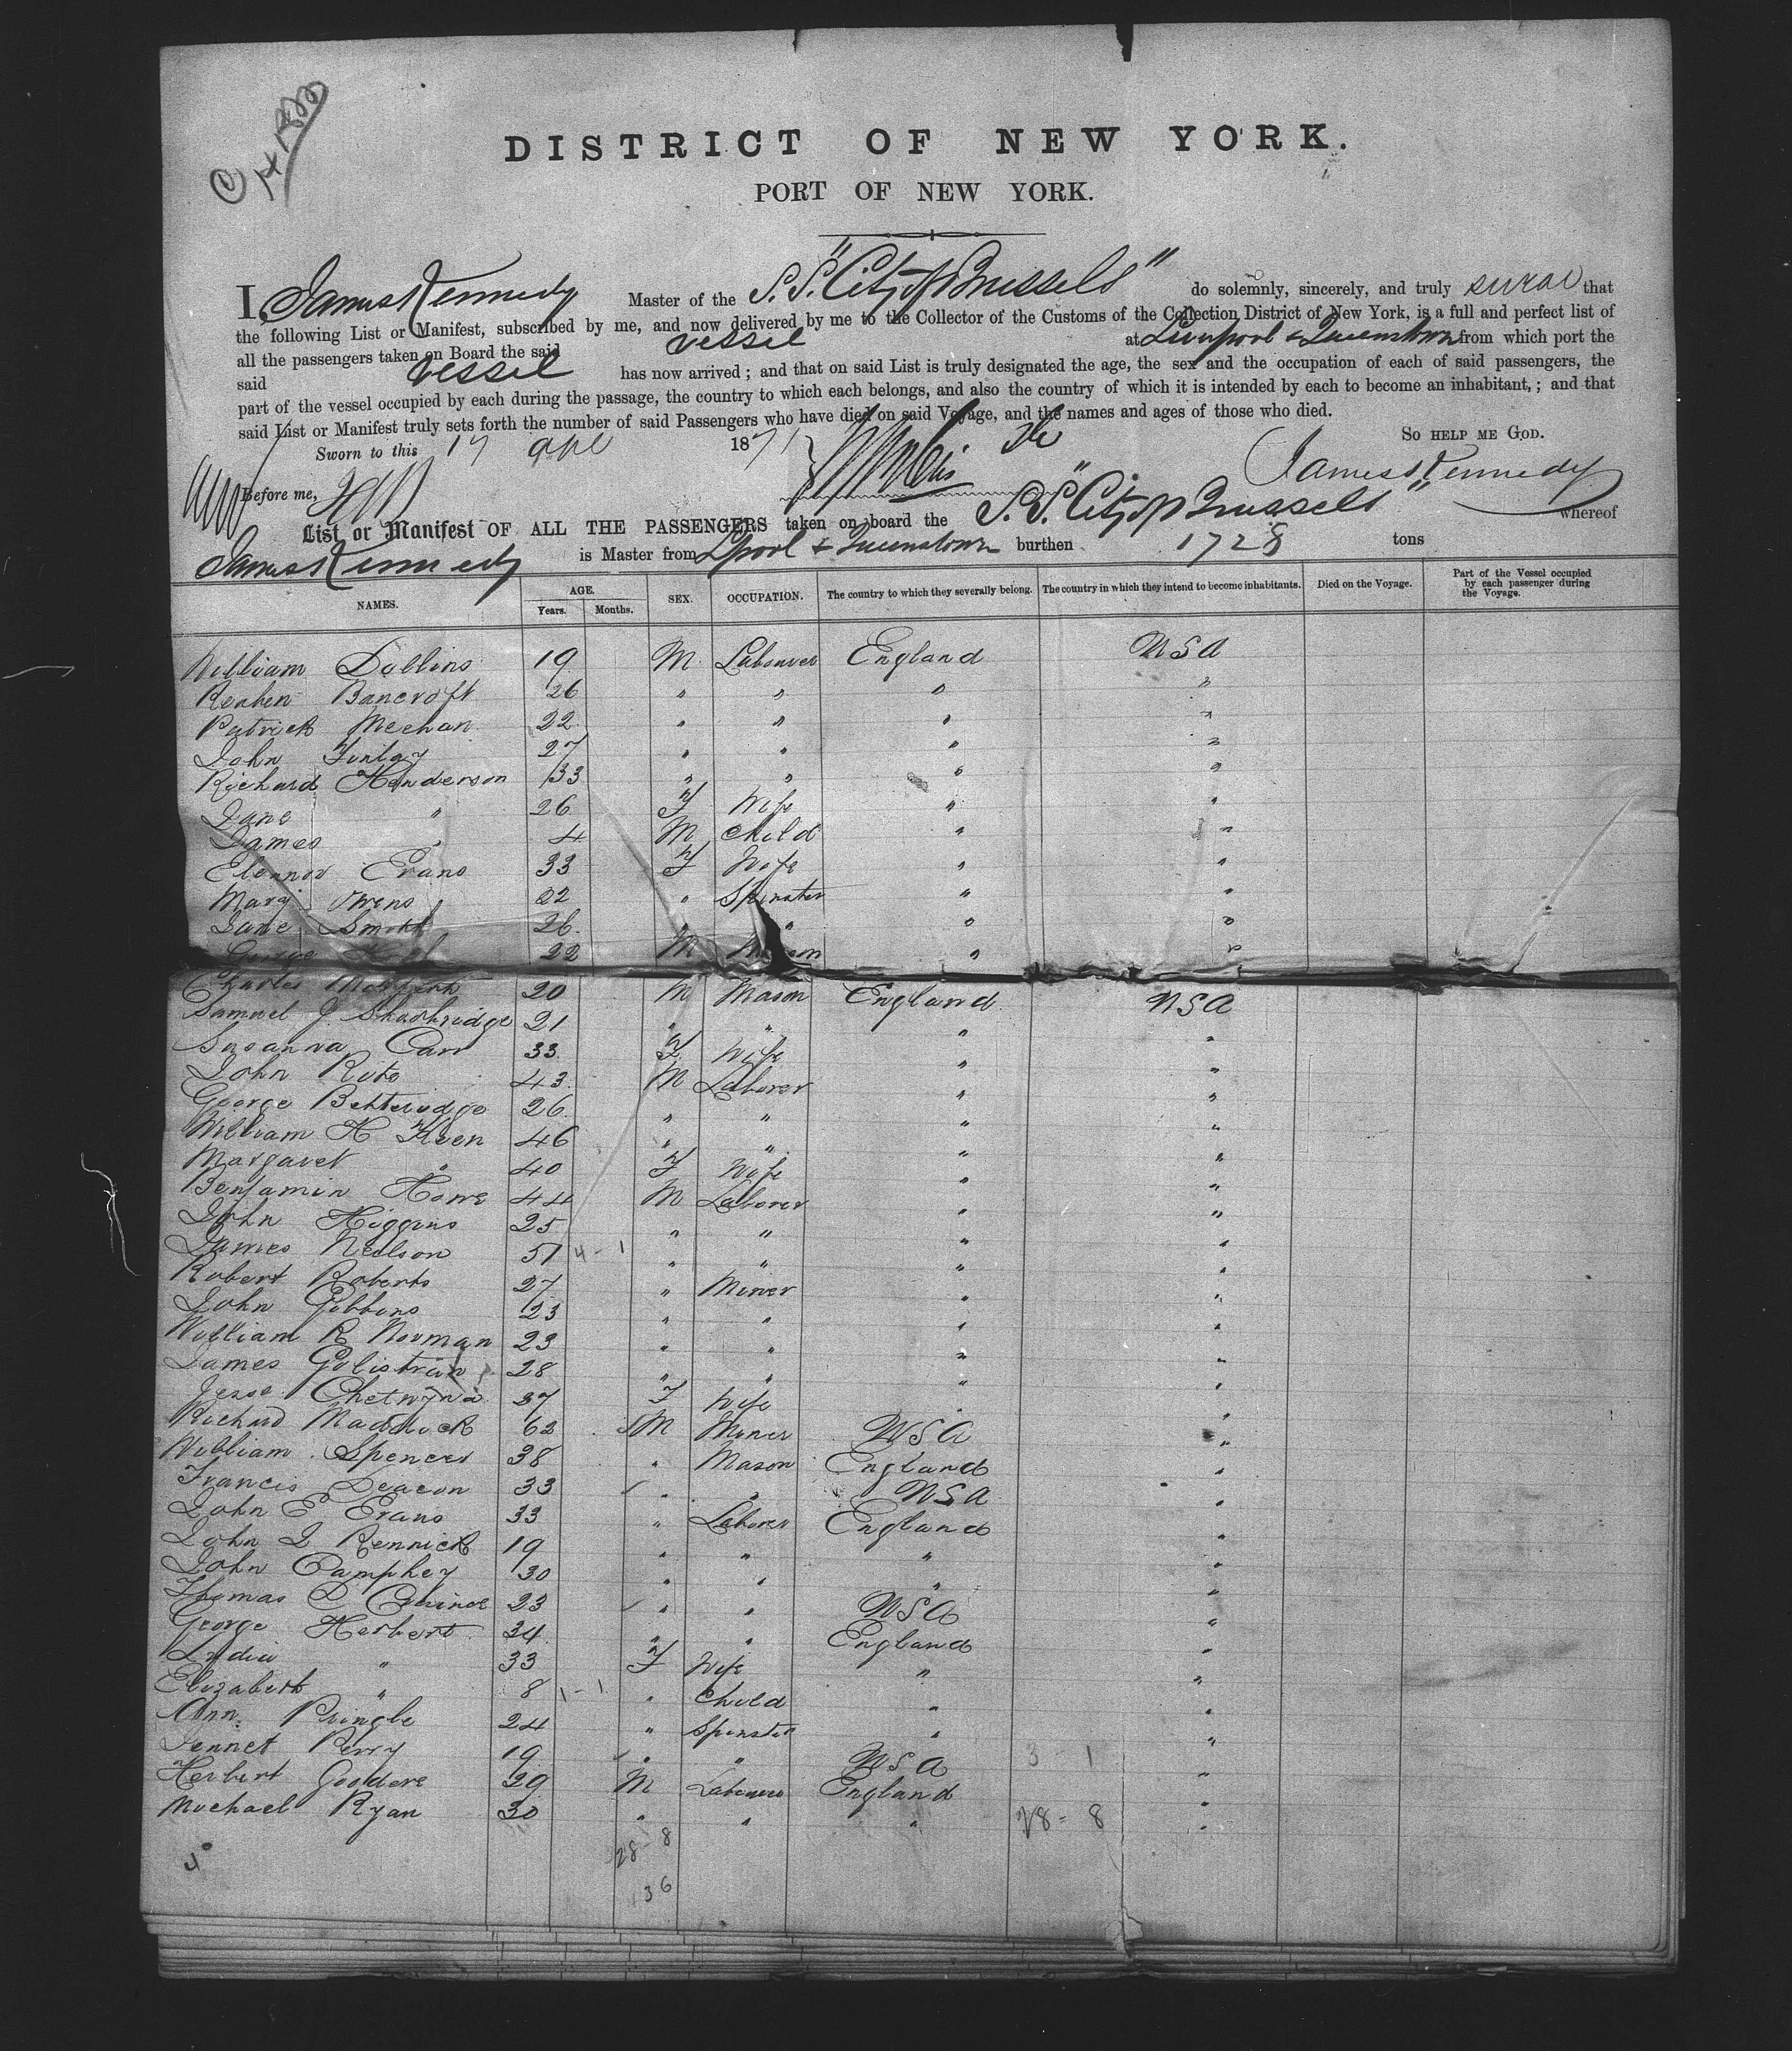 C 14 1800
DISTRICT OF NEW YORK.
PORT OF NEW YORK.
I, James Kennedy Master of the S.S. "City of Brussels" do solemnly, sincerely, and truly swear that
the following List or Manifest, subscribed by me, and now delivered by me to the Collector of the Customs of the Collection District of New York, is a full and perfect list of
all the passengers taken on Board the said vessel at Liverpool & Queenstown from which port the
said vessel has now arrived; and that on said List is truly designated the age, the sex and the occupation of each of said passengers, the
part of the vessel occupied by each during the passage, the country to which each belongs, and also the country of which it is intended by each to become an inhabitant,; and that
said List or Manifest truly sets forth the number of said Passengers who have died on said Voyage, and the names and ages of those who died.
Sworn to this 17 Apl 1871 So help me God.
Before me, James Kennedy
List or Manifest OF ALL THE PASSENGERS taken on board the S.S. "City of Brussels" whereof
James Kennedy is Master from Lpool & Queenstown burthen 1728 tons
NAMES. AGE. Years. Months. SEX. OCCUPATION. The country to which they severally belong. The country in which they intend to become inhabitants. Died on the Voyage. Part of the Vessel occupied by each passenger during the Voyage.
William Dollins 19 M Labourer England USA
Reuben Bancroft 26 " " " "
Patrick Meehan 22 " " " "
John Finlay 27 " " " "
Richard Henderson 33 " " " "
Jane " 26 F Wife " "
James " 4 M Child " "
Elennor Evans 33 F Wife " "
Mary Owens 22 " Spinster " "
Jane Smith 26 " " " "
George 22 M Mason " "
Charles 20 M Mason England USA
Samuel J Shathridge 21 " " " "
Susanna Carr 33 F Wife " "
John Roto 43 M Laborer " "
George Betteridge 26 " " " "
William H Keen 46 " " " "
Margaret " 40 F Wife " "
Benjamin Howe 44 M Laborer " "
John Higgins 25 " " " "
James Neilson 51 4 - 1 " " " "
Robert Roberts 27 " Miner " "
John Gibbons 23 " " " "
William R Norman 23 " " " "
James Golistrian 28 " " " "
Jesse Chetwynd 37 F Wife " "
Richard Maddock 62 M Miner USA "
William Spencer 38 " Mason England "
Francis Deacon 33 " " USA "
John E Evans 33 " Laborer England "
John J Rennick 19 " " " "
John Pamphey 30 " " " "
Thomas D Quince 23 " " USA "
George Herbert 34 " " England "
Lydia " 33 F Wife " "
Elizabeth " 8 1 - 1 " Child " "
Ann Pringle 24 " Spinster " "
Jennet Perry 19 " " USA 3 - 1 "
Herbert Goodere 29 M Labourer England "
Michael Ryan 30 " " " 28 - 8 "
40 28 - 8
36